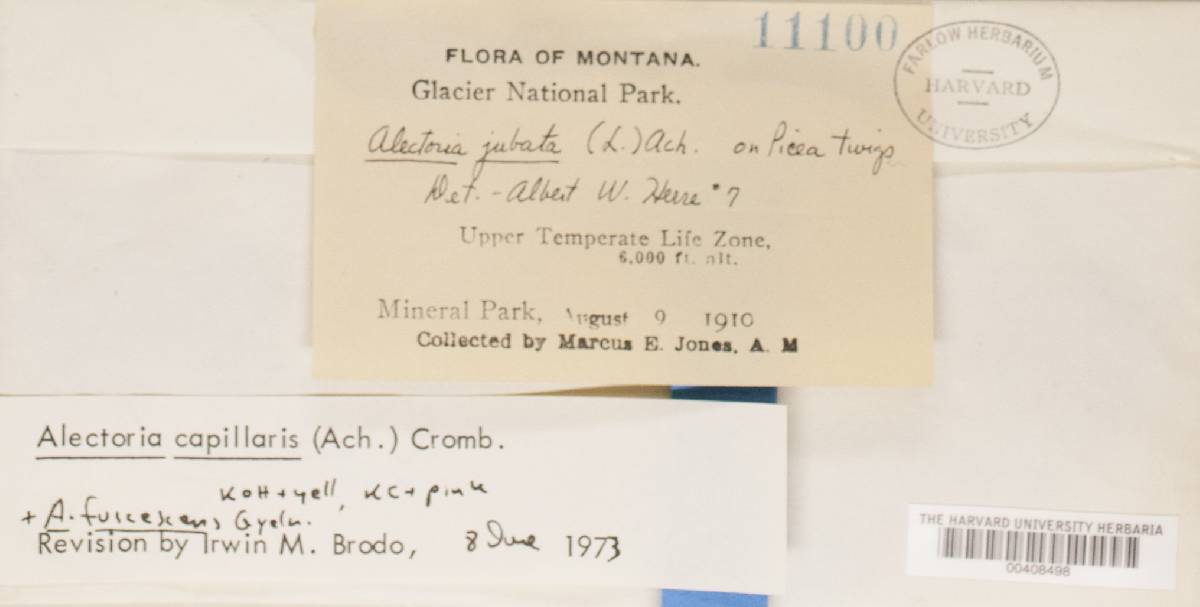 11100
FARLOW HERBARIUM
HARVARD
UNIVERSITY
FLORA OF MONTANA.
Glacier National Park.
Alectoria jubata (L.) Ach. on Picea twigs
Det. - Albert W. Herre #7
Upper Temperate Life Zone,
6,000 ft. alt.
Mineral Park, August 9 1910
Collected by Marcus E. Jones, A. M
Alectoria capillaris (Ach.) Cromb.
KOH+yell, KC+pink
+ A. fuscescens Gyeln.
Revision by Irwin M. Brodo, 8 June 1973
THE HARVARD UNIVERSITY HERBARIA
00408498